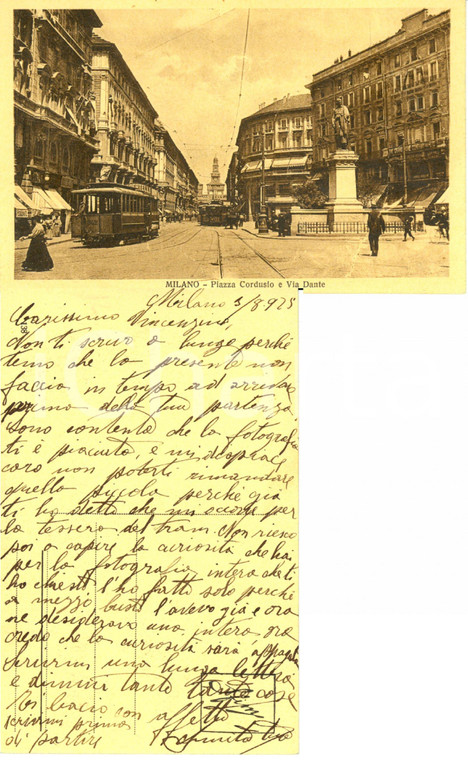 MILANO - Piazza Cordusio e Via Dante
Milano 3/8.925
Carissimo Vincenzino,
Non ti scrivo a lungo perché
temo che la presente non
faccia in tempo ad arrivar
prima della tua partenza.
Sono contenta che la fotografia
ti è piaciuta, e mi dispiace
caro non poterti rimandare
quella piccola perché già
ti ho detto che mi occorre per
la tessera del tram. Non riesco
poi a capire la curiosità che hai
per la fotografia intera che ti
ho chiesto l'ho fatto solo perché
a mezzo busto l'avevo già e ora
ne desideravo una intera ora
credo che la curiosità sarà appagata
Scrivimi una lunga lettera
e dimmi tante tante cose
Ti bacio con affetto
scrivimi prima
di partire